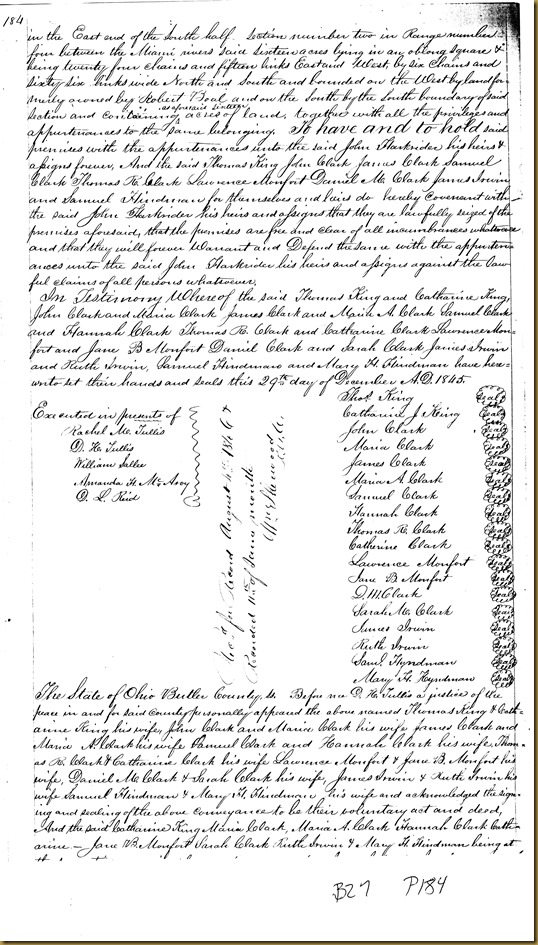 184
in the East end of the South half. Section number two in Range number
four between the Miami rivers said sixteen acres lying in an oblong square &
being twenty four chains and fifteen links East and West, by six Chains and
sixty six links wide North and South and bounded on the West by land for-
merly owned by Robert Boal and on the South by the South boundary of said
as aforesaid sixteen
section and containing acres of land. together with all the privileges and
appurtenances to the same belonging. To have and to hold said
premises with the appurtenances unto the said John Harkrider his heirs &
assigns forever. And the said Thomas King John Clark James Clark Samuel
Clark Thomas R. Clark Lawrence Monfort Daniel M. Clark James Irwin
and Samuel Hindman for themselves and heirs do hereby Covenant with
the said John Harkrider his heirs and assigns that they are lawfully seized of the
premises aforesaid, that the premises are free and clear of all incumbrances whatsoever
and that they will forever Warrant and Defend the same with the appurten-
ances unto the said John Harkrider his heirs and assigns against the law
ful claims of all persons whatsoever.
In Testimony Whereof the said Thomas King and Catharine King,
John Clark and Maria Clark James Clark and Maria A. Clark Samuel Clark
and Hannah Clark Thomas R. Clark and Catharine Clark Lawrence Mon-
fort and Jane B Monfort Daniel Clark and Sarah Clark James Irwin
and Ruth Irwin, Samuel Hindman and Mary H. Hindman have here-
unto set their hands and seals this 29th day of December A.D. 1845.
Executed in presents of
Rachel Mc. Tullis
D. H. Tullis
William Sallee
Amanda H. McAvoy
D. L. Reid
Rec'd for Record August 4th 1846 &
Recorded 11th of same month
Thos. King Seal
Catharine J King Seal
John Clark Seal
Maria Clark Seal
James Clark Seal
Maria A. Clark Seal
Samuel Clark Seal
Hannah Clark Seal
Thomas R. Clark Seal
Catherine Clark Seal
Lawrence Monfort Seal
Jane B Monfort Seal
D. M. Clark Seal
Sarah Mc. Clark Seal
James Irwin Seal
Ruth Irwin Seal
Saml Hyndman Seal
Mary H. Hyndman Seal
The State of Ohio Butler County, ss. Before me D. H. Tullis a justice of the
peace in and for said County personally appeared the above named Thomas King & Cath-
arine King his wife, John Clark and Maria Clark his wife James Clark and
Maria A. Clark his wife Samuel Clark and Hannah Clark his wife, Thom-
as R. Clark & Catharine Clark his wife Lawrence Monfort & Jane B. Monfort his
wife, Daniel Mc Clark & Sarah Clark his wife, James Irwin & Ruth Irwin his
wife Samuel Hindman & Mary H. Hindman his wife and acknowledged the sign-
ing and sealing of the above conveyance to be their voluntary act and deed,
And the said Catharine King Maria Clark, Maria A. Clark Hannah Clark Cath-
arine — Jane B Monfort Sarah Clark Ruth Irwin & Mary H. Hindman being at
B27 P184